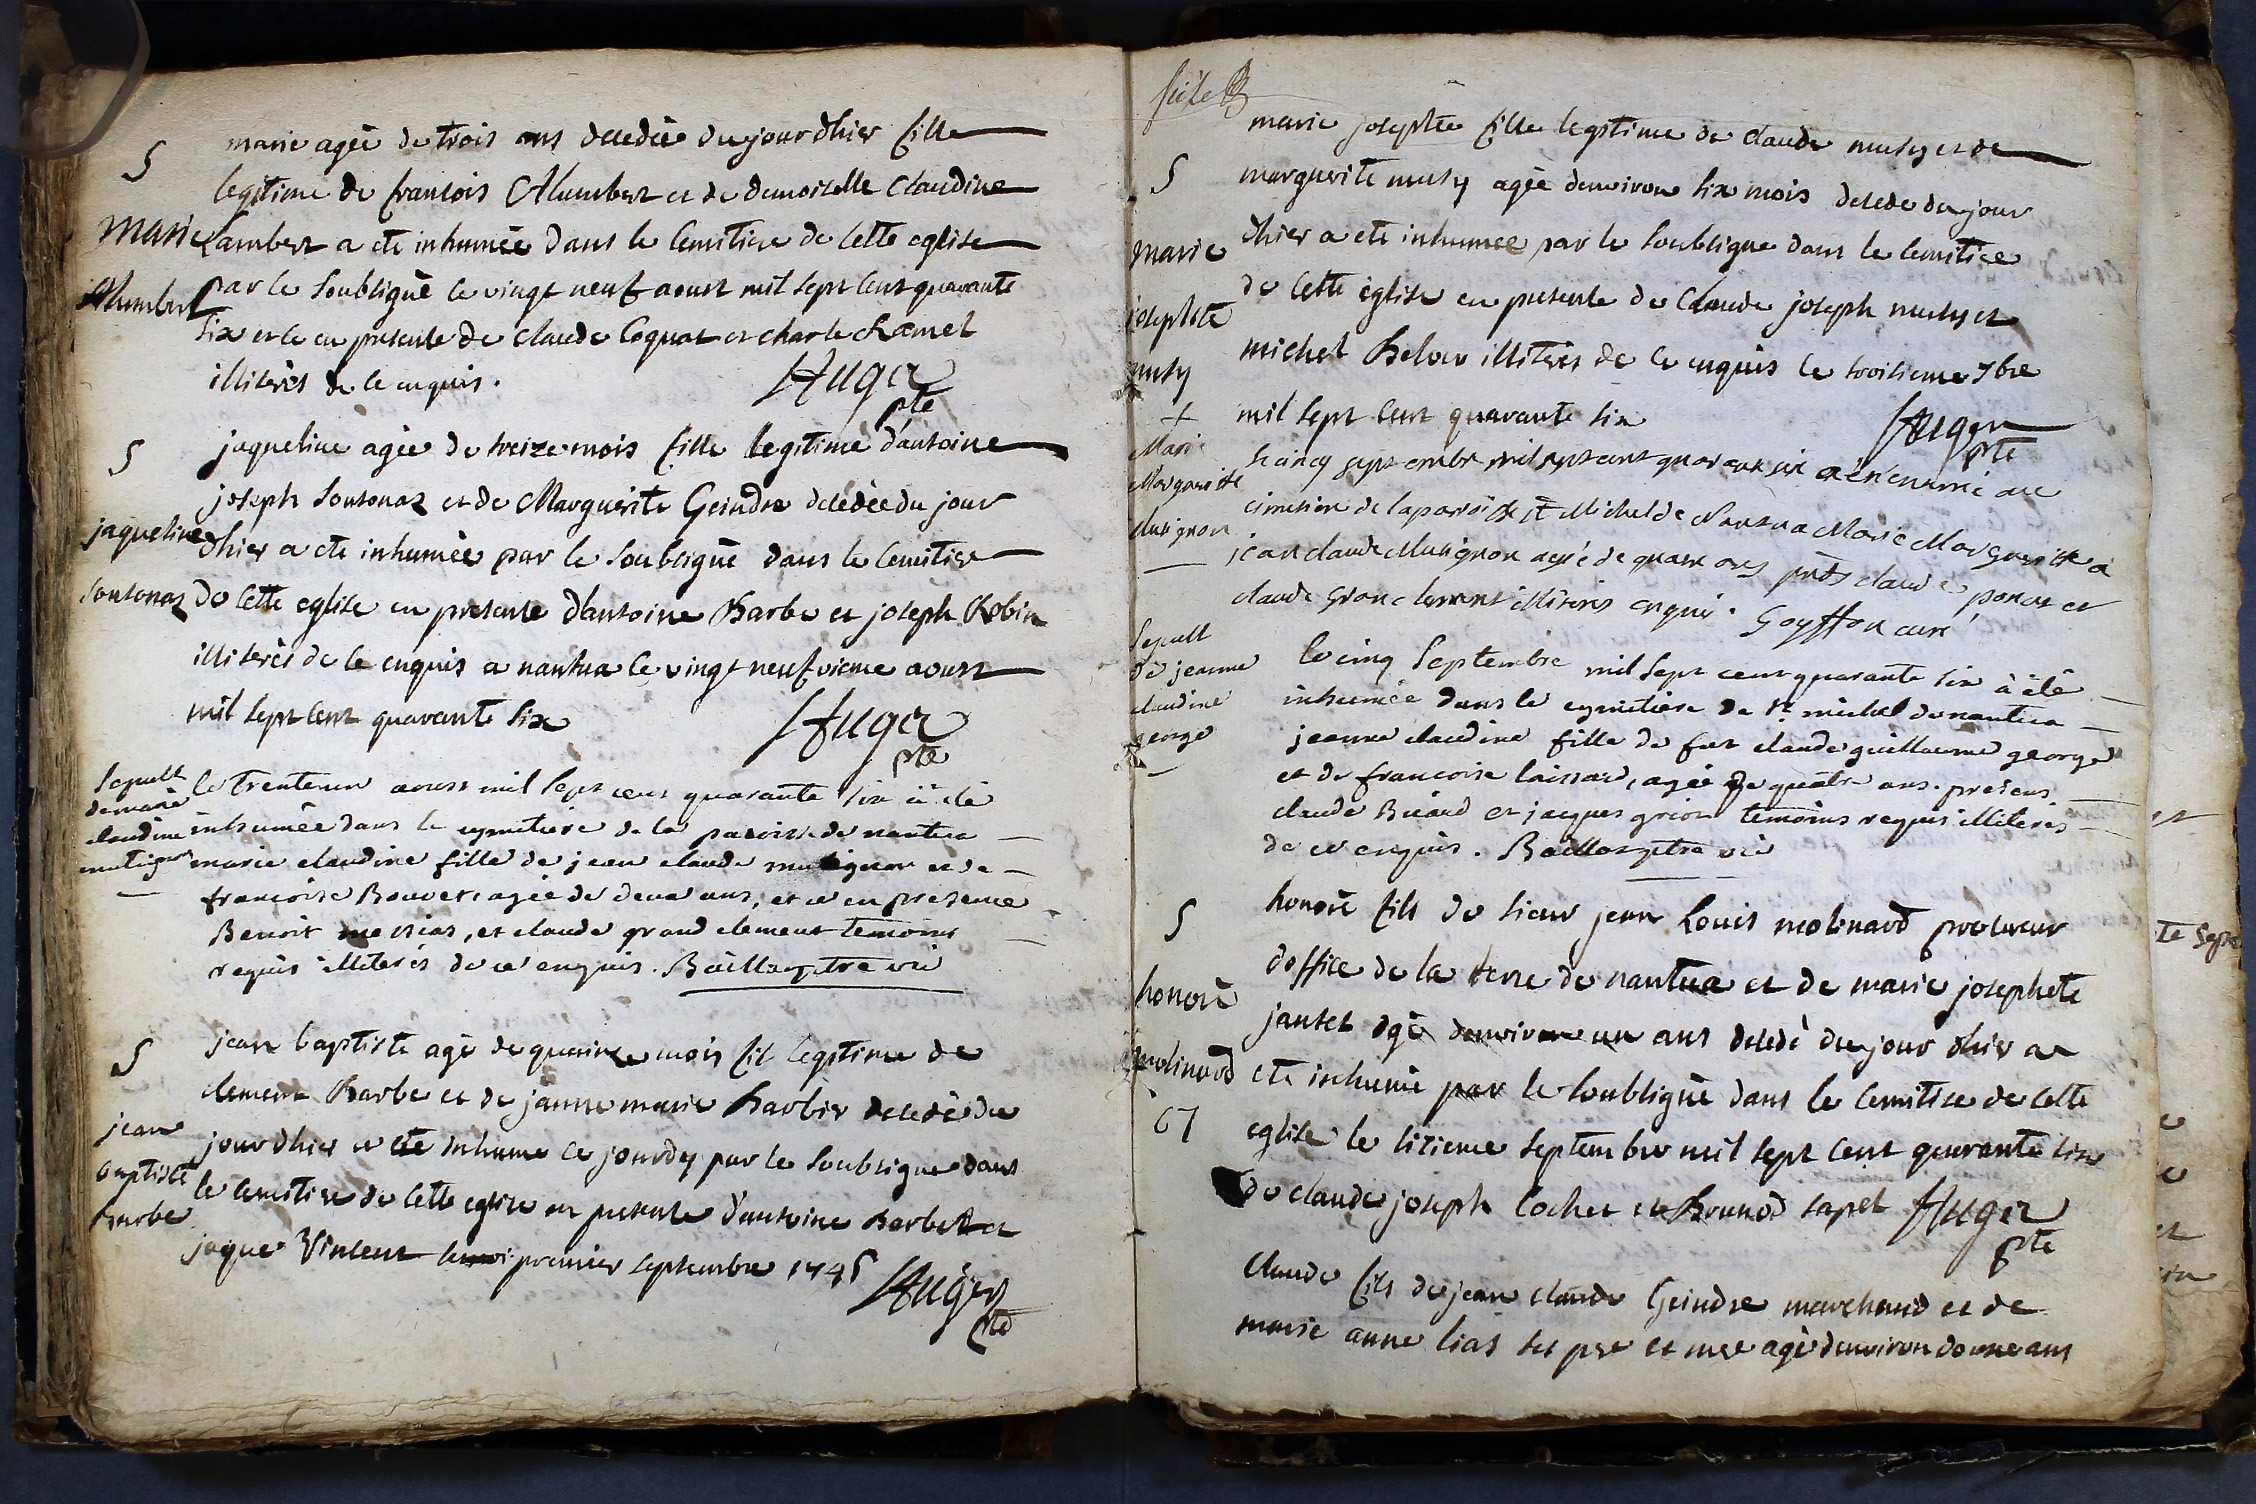 S
marie agèe de trois ans decedèe du jour dhier fille
legitime de francois Alumbert et de demoiselle Claudine
Marie
Lambert a ete inhumèe dans le Cemitiere de Cette eglise
Alumbert
par le Soubsignè le vingt neuf aoust mil Sept Cent quarante
Six et ce en presente de claude Coquat et charle Ramel
illiterès de ce enquis.
Huger
pte
S
jaqueline agèe de treize mois fille legitime d'antoine
joseph Sontonaz et de Marguerite Geindre decedèe du jour
jaqueline
dhier a ete inhumèe par le Soubsignè dans le Cemitier
Sontonaz
de Cette eglise en presente dantoine Barbe et joseph Robin
illiterès de ce enquis a nantua le vingt neufvieme aoust
mil Sept Cent quarante Six
Huger
pte
Sepult
de marie
claudine
mutignon
le trente un aoust mil Sept cent quarante Six à été
inhumée dans le cymetiere de la paroisse de nantua
marie claudine fille de jean claude mutignon et de
francoise Bouvet agée de deux ans, et ce en presence
Benoit messias, et claude grand clement temoins
requis illiterés de ce enquis. Baillat ptre vic
S
jean
baptiste
barbe
jean baptiste agè de quainze mois fil legitime de
clement Barbe et de janne marie Barbier decedè du
jour dhier a ete inhume ce jourdy par le Soubsigne dans
le Cemitiere de Cette eglise en presente d'antoine Barbe et
jaque Vincent premier Septembre 1746
Huger
pte
suite
S
marie josephte fille legitime de claude musy et de
marguerite musy agèe denviron Six mois decede du jour
marie
josephte
musy
dhier a ete inhumee par le Soubsigne dans le Cemitiere
de Cette èglise en presente de Claude joseph musy et
michel Belou illiterès de ce enquis le troisieme 7bre
mil Sept Cent quarante Six
Huger
pte
+
Marie
Marguerite
Mutignon
le cinq septembre mil sept cent quarante six a été enterré au
cimetiere de la paroisse St Michel de Nantua Marie Marguerite a
jean claude Mutignon agé de quatre ans prêts claude ponat et
claude grand clement illiterés enquis. Goyffon curé
Sepult
de jeanne
claudine
george
le cinq Septembre mil Sept cent quarante Six à été
inhumée dans le cymetiere de St michel de nantua
jeanne claudine fille de feu claude guillaume george
et de francoise laissard, agée de quatre ans. présens
claude Bicard et jacques griot temoins requis illiterés
de ce enquis. Baillat ptre vic
S
honorè
molinard
67
honorè fils de Sieur jean Louis molinard procureur
doffice de la terre de nantua et de marie josephete
jantet agè denviron un ans decedè du jour dhier a
ete inhumè par le Soubsignè dans le Cemitiere de Cette
eglise le sixieme Septembre mil Sept Cent quarante Six
de claude joseph Cochet et Brunod tapet Huger
pte
Claude fils de jean claude Geindre marchand et de
marie anne lias ses pere et mere agè denviron douze ans